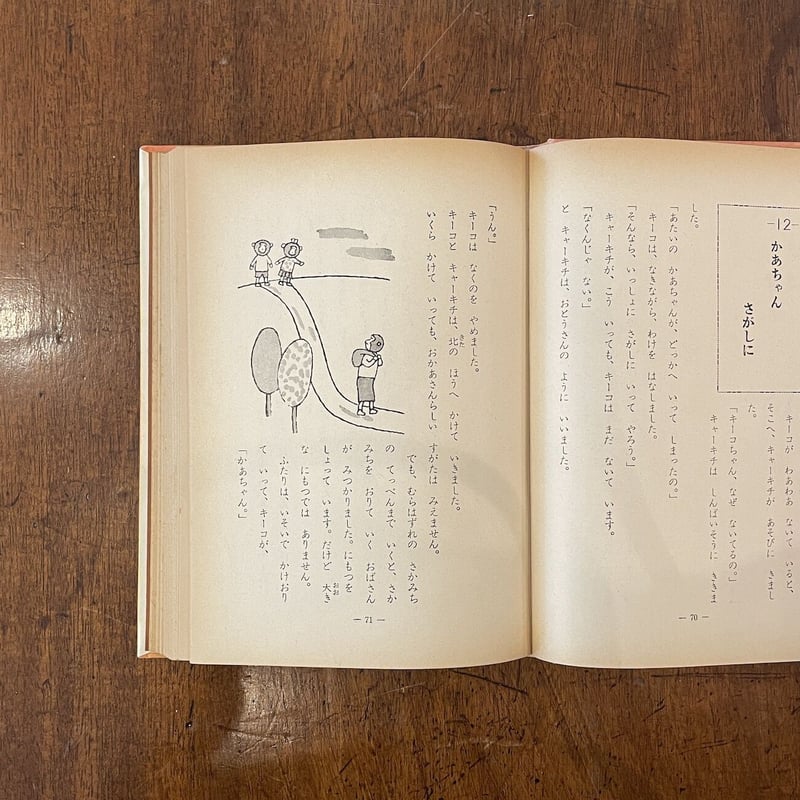 —12—
かあちゃん
さがしに
キーコが わあわあ ないて いると、
そこへ、キャーキチが あそびに きまし
た。
「キーコちゃん、なぜ ないてるの。」
キャーキチは しんぱいそうに ききま
した。
「あたいの かあちゃんが、どっかへ いって しまったの。」
キーコは、なきながら、わけを はなしました。
「そんなら、いっしょに さがしに いって やろう。」
キャーキチが、こう いっても、キーコは まだ ないて います。
「なくんじゃ ない。」
と キャーキチは、おとうさんの ように いいました。
— 70 —
「うん。」
キーコは なくのを やめました。
キーコと キャーキチは、北の ほうへ かけて いきました。
きた
いくら かけて いっても、おかあさんらしい すがたは みえません。
でも、むらはずれの さかみち
の てっぺんまで いくと、さか
みちを おりて いく おばさん
が みつかりました。にもつを
しょって います。だけど 大き
おお
な にもつでは ありません。
ふたりは、いそいで かけおり
て いって、キーコが、
「かあちゃん。」
— 71 —